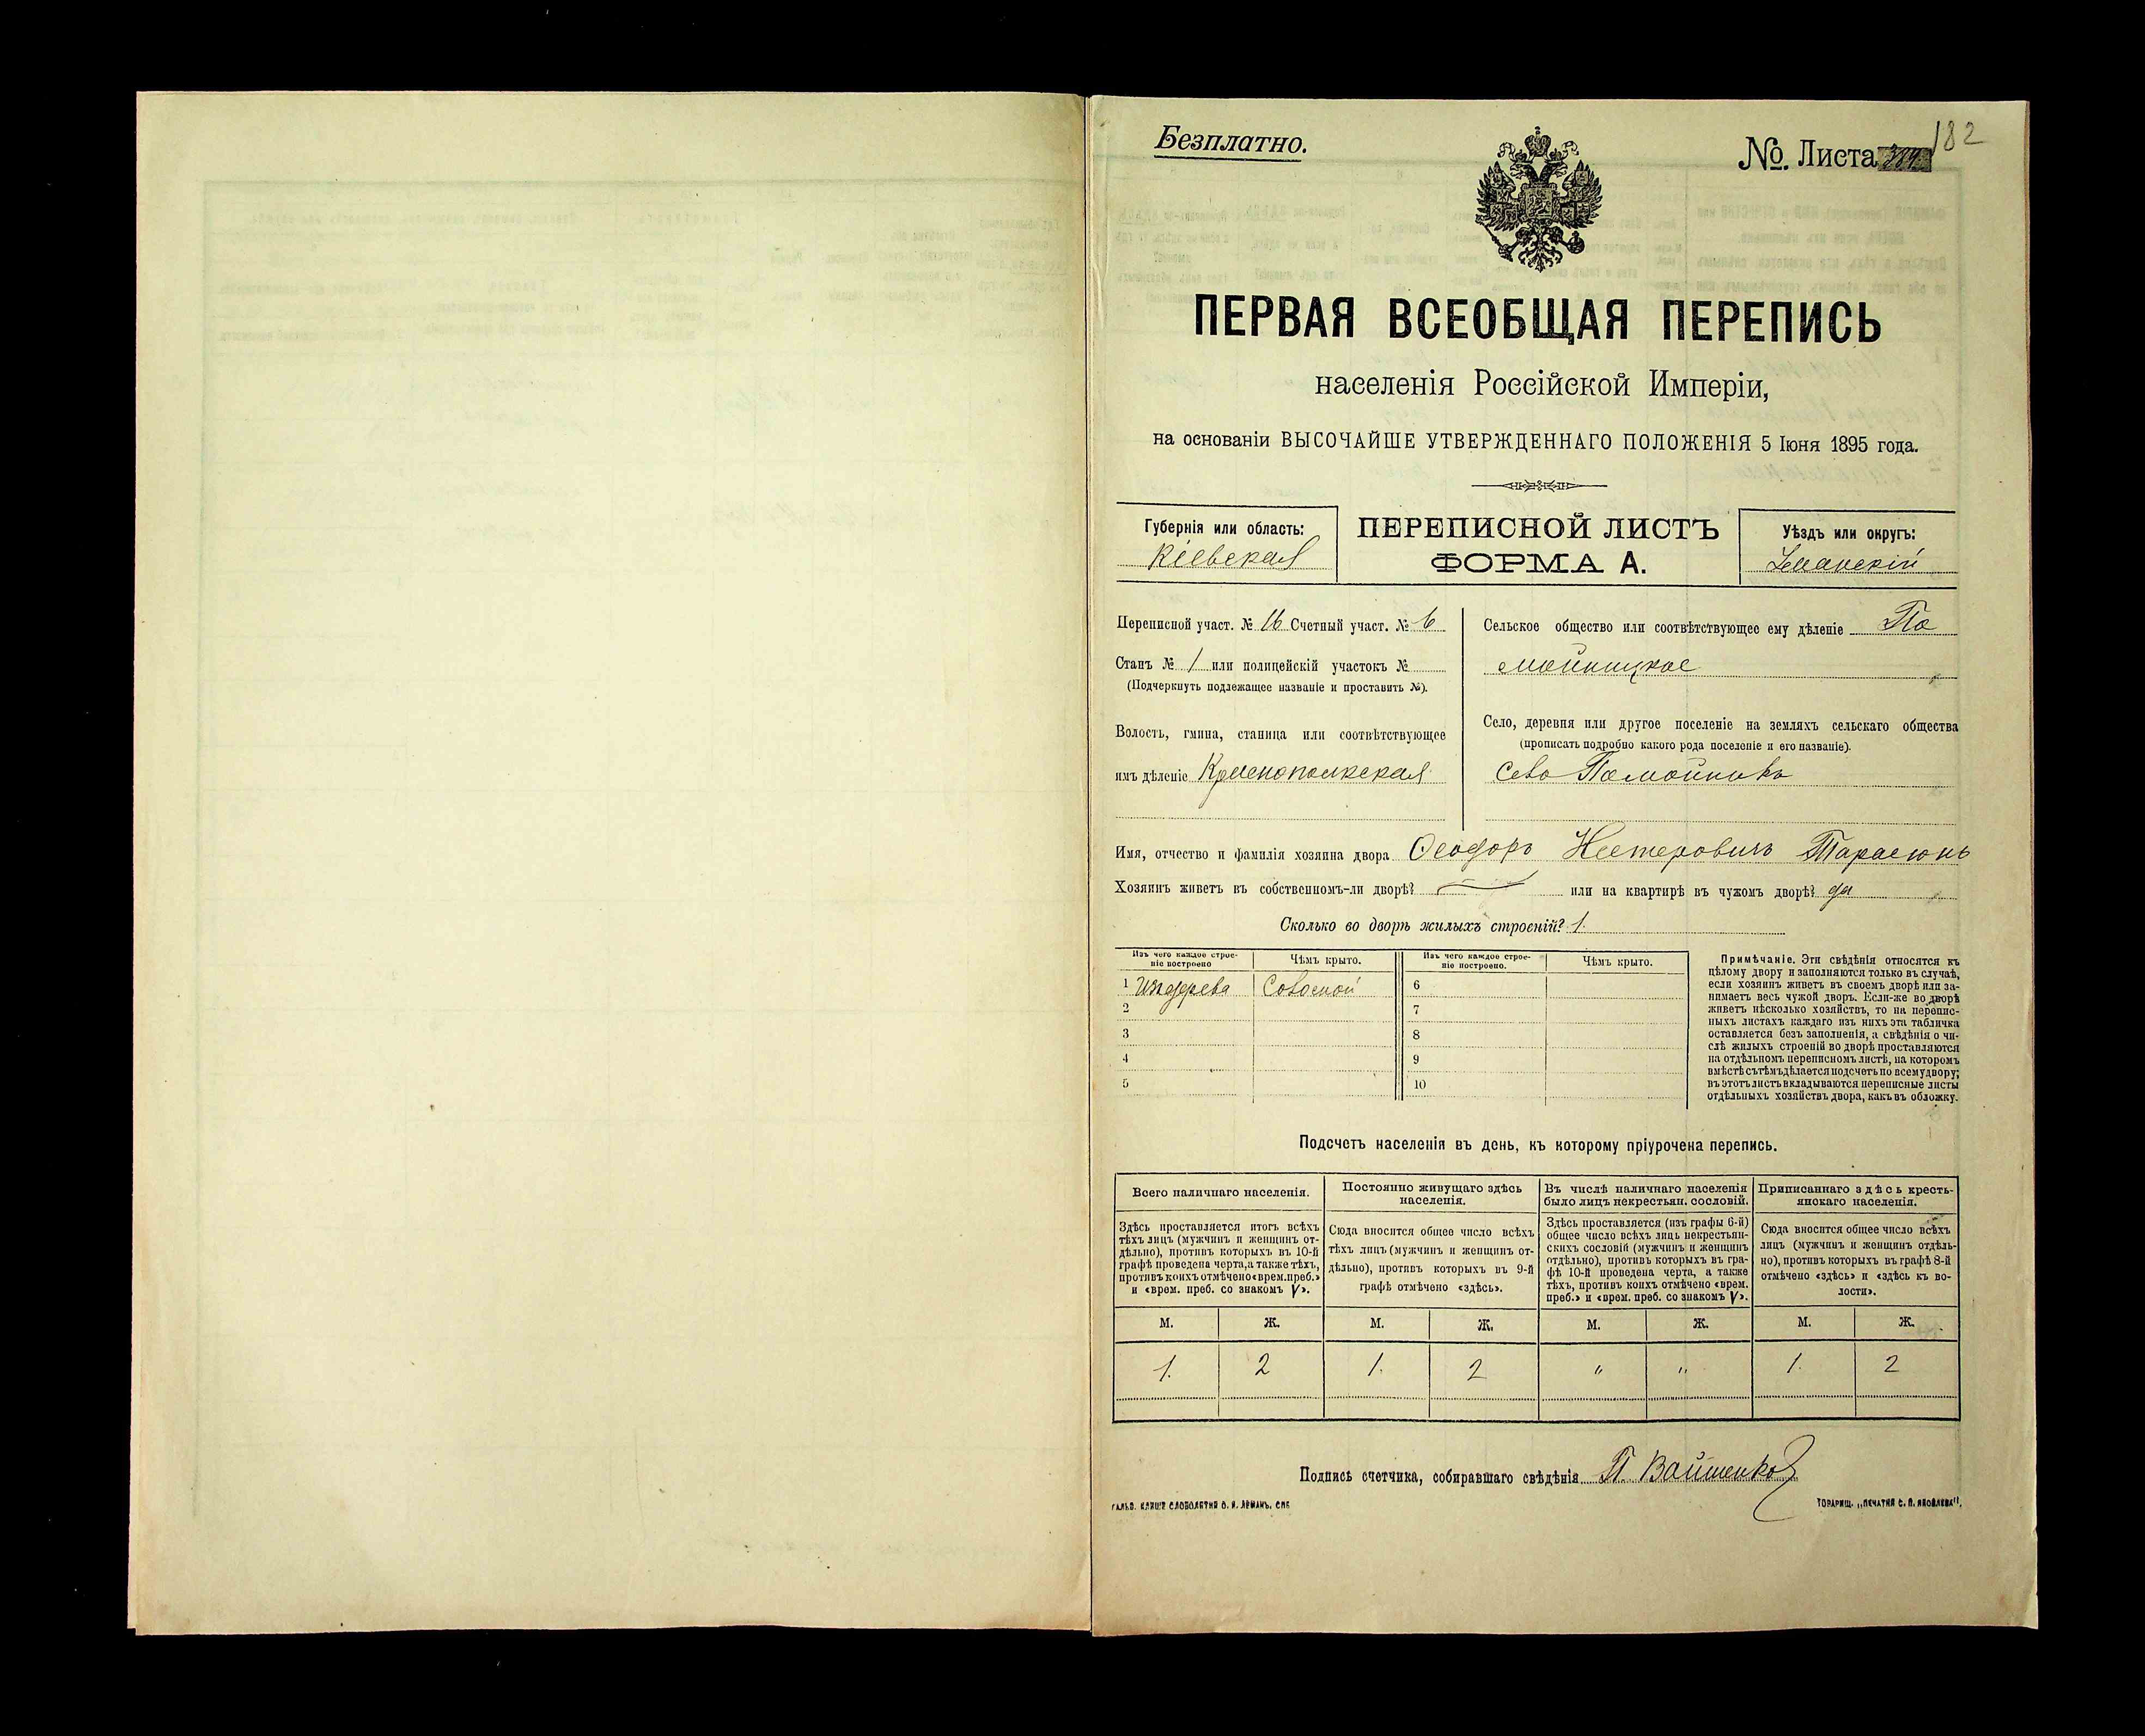 Безплатно.
№. Листа 182
ПЕРВАЯ ВСЕОБЩАЯ ПЕРЕПИСЬ
населенія Россійской Имперіи,
на основаніи ВЫСОЧАЙШЕ УТВЕРЖДЕННАГО ПОЛОЖЕНІЯ 5 Іюня 1895 года.
Губернія или область:
Кіевская
ПЕРЕПИСНОЙ ЛИСТЪ
ФОРМА А.
Уѣздъ или округъ:
Уманскій
Переписной участ. № 16 Счетный участ. № 6
Станъ № 1 или полицейскій участокъ №
(Подчеркнуть подлежащее названіе и проставить №).
Волость, гмина, станица или соотвѣтствующее
имъ дѣленіе
Сельское общество или соотвѣтствующее ему дѣленіе По
мойницкое
Село, деревня или другое поселеніе на земляхъ сельскаго общества
(прописать подробно какого рода поселеніе и его названіе).
Село Помойникъ
Имя, отчество и фамилія хозяина двора Ѳеодоръ Нестеровичъ Тарасюкъ
Хозяинъ живетъ въ собственномъ-ли дворѣ? — или на квартирѣ въ чужомъ дворѣ? да
Сколько во дворѣ жилыхъ строеній? 1.
Изъ чего каждое строе-
ніе построено
Чѣмъ крыто.
Изъ чего каждое строе-
ніе построено.
Чѣмъ крыто.
1 Изъ дерева Соломой 6
2 7
3 8
4 9
5 10
Примѣчаніе. Эти свѣдѣнія относятся къ
цѣлому двору и заполняются только въ случаѣ,
если хозяинъ живетъ въ своемъ дворѣ или за-
нимаетъ весь чужой дворъ. Если-же во дворѣ
живетъ нѣсколько хозяйствъ, то на перепис-
ныхъ листахъ каждаго изъ нихъ эта табличка
оставляется безъ заполненія, а свѣдѣнія о чи-
слѣ жилыхъ строеній во дворѣ проставляются
на отдѣльномъ переписномъ листѣ, на которомъ
вмѣстѣ съ тѣмъ дѣлается подсчетъ по всему двору;
въ этотъ листъ вкладываются переписные листы
отдѣльныхъ хозяйствъ двора, какъ въ обложку.
Подсчетъ населенія въ день, къ которому пріурочена перепись.
Всего наличнаго населенія.
Здѣсь проставляется итогъ всѣхъ
тѣхъ лицъ (мужчинъ и женщинъ от-
дѣльно), противъ которыхъ въ 10-й
графѣ проведена черта, а также тѣхъ,
противъ коихъ отмѣчено «врем. преб.»
и «врем. преб. со знакомъ V».
Постоянно живущаго здѣсь
населенія.
Сюда вносится общее число всѣхъ
тѣхъ лицъ (мужчинъ и женщинъ от-
дѣльно), противъ которыхъ въ 9-й
графѣ отмѣчено «здѣсь».
Въ числѣ наличнаго населенія
было лицъ некрестьян. сословій.
Здѣсь проставляется (изъ графы 6-й)
общее число всѣхъ лицъ некрестьян-
скихъ сословій (мужчинъ и женщинъ
отдѣльно), противъ которыхъ въ гра-
фѣ 10-й проведена черта, а также
тѣхъ, противъ коихъ отмѣчено «врем.
преб.» и «врем. преб. со знакомъ V».
Приписаннаго здѣсь кресть-
янскаго населенія.
Сюда вносится общее число всѣхъ
лицъ (мужчинъ и женщинъ отдѣль-
но), противъ которыхъ въ графѣ 8-й
отмѣчено «здѣсь» и «здѣсь къ во-
лости».
М. Ж. М. Ж. М. Ж. М. Ж.
1. 2 1. 2 " " 1. 2
Подпись счетчика, собиравшаго свѣдѣнія П. Войтенко
ТОВАРИЩ. „ПЕЧАТНЯ С. П. ЯКОВЛЕВА".